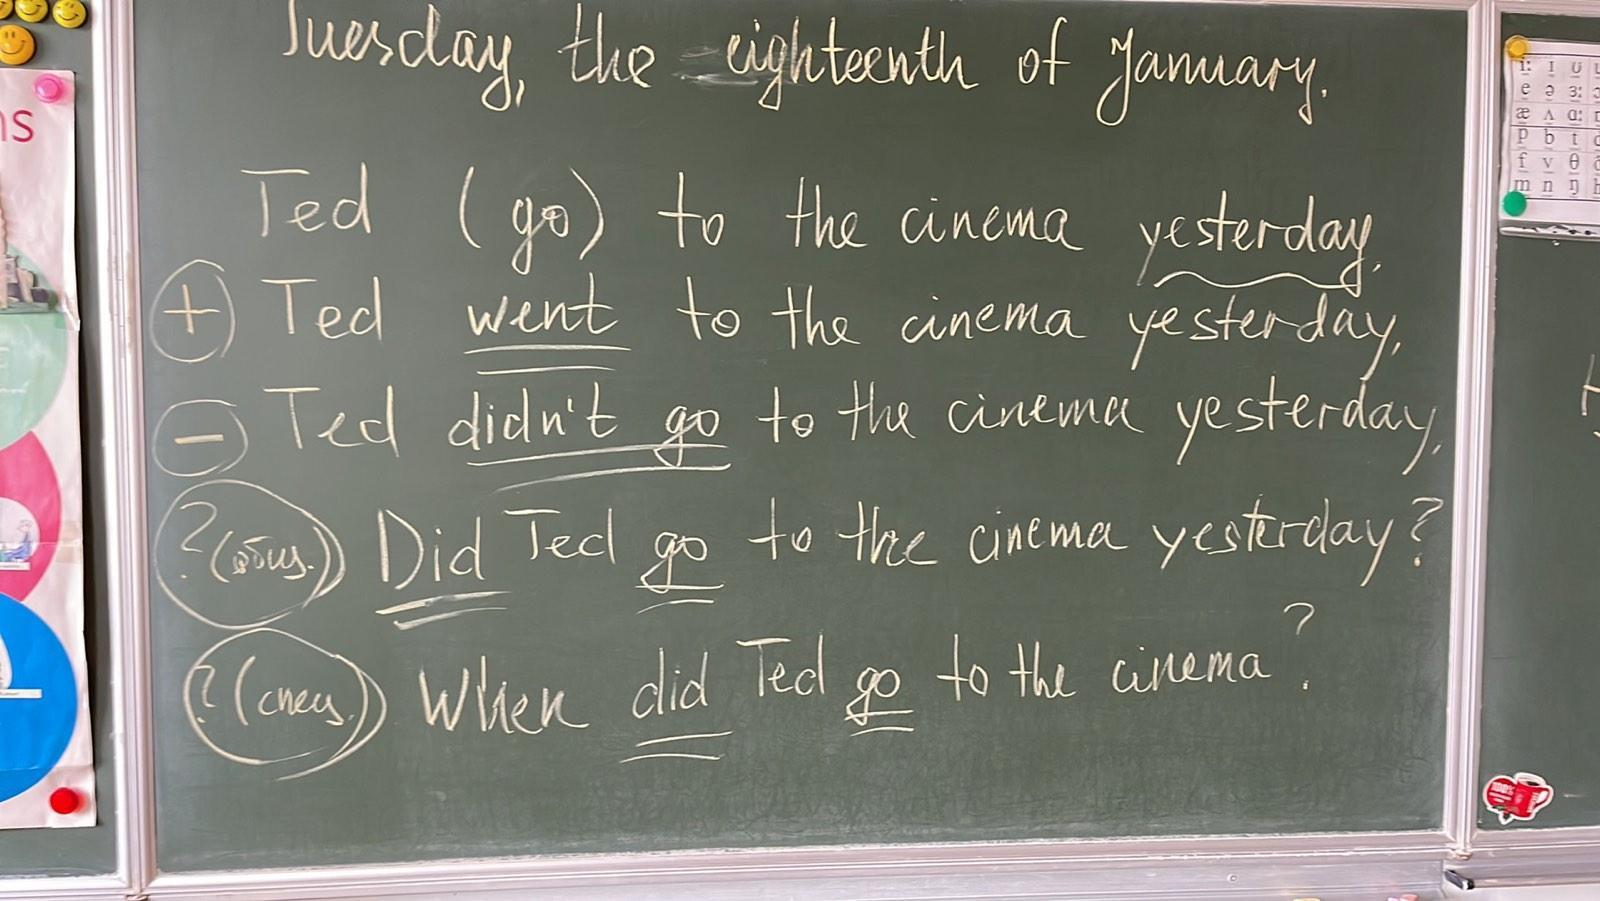 Tuesday, the eighteenth of January.
Ted (go) to the cinema yesterday.
+ Ted went to the cinema yesterday.
− Ted didn't go to the cinema yesterday.
?(общ.) Did Ted go to the cinema yesterday?
?(спец.) When did Ted go to the cinema?
ns
i: ɪ ʊ
e ə ɜ:
æ ʌ ɑ:
p b t
f v θ
m n ŋ h
100%